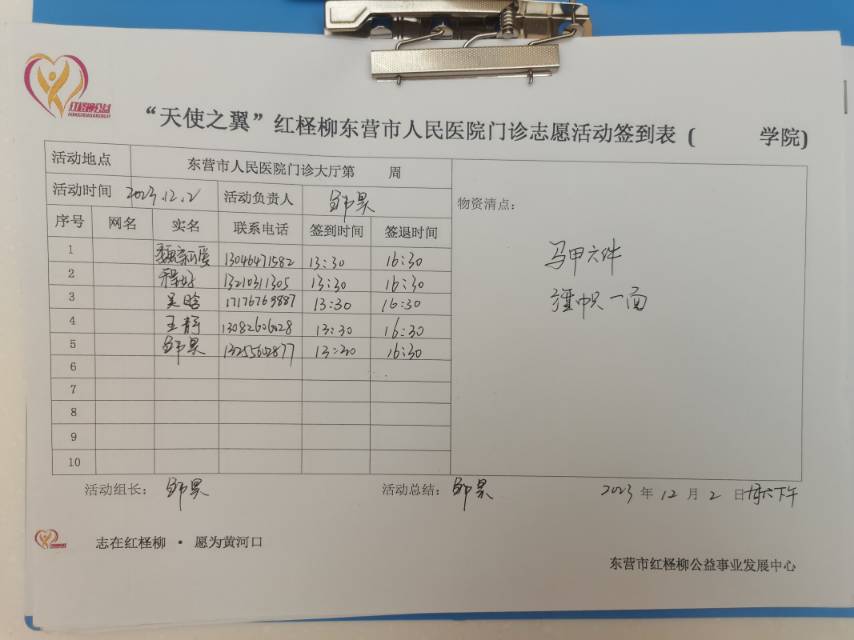 红柽柳公益
“天使之翼”红柽柳东营市人民医院门诊志愿活动签到表 ( 学院)
活动地点 东营市人民医院门诊大厅第 周
活动时间 2023.12.2 活动负责人
物资清点：
序号 网名 实名 联系电话 签到时间 签退时间
1 13046471582 13:30 16:30
2 程好 13210311305 13:30 16:30
3 吴晗 17176769887 13:30 16:30
4 王静 13082606028 13:30 16:30
5 13255602877 13:30 16:30
6
7
8
9
10
马甲六件
一面
活动组长：
活动总结：
2023 年 12 月 2 日 下午
志在红柽柳 · 愿为黄河口
东营市红柽柳公益事业发展中心